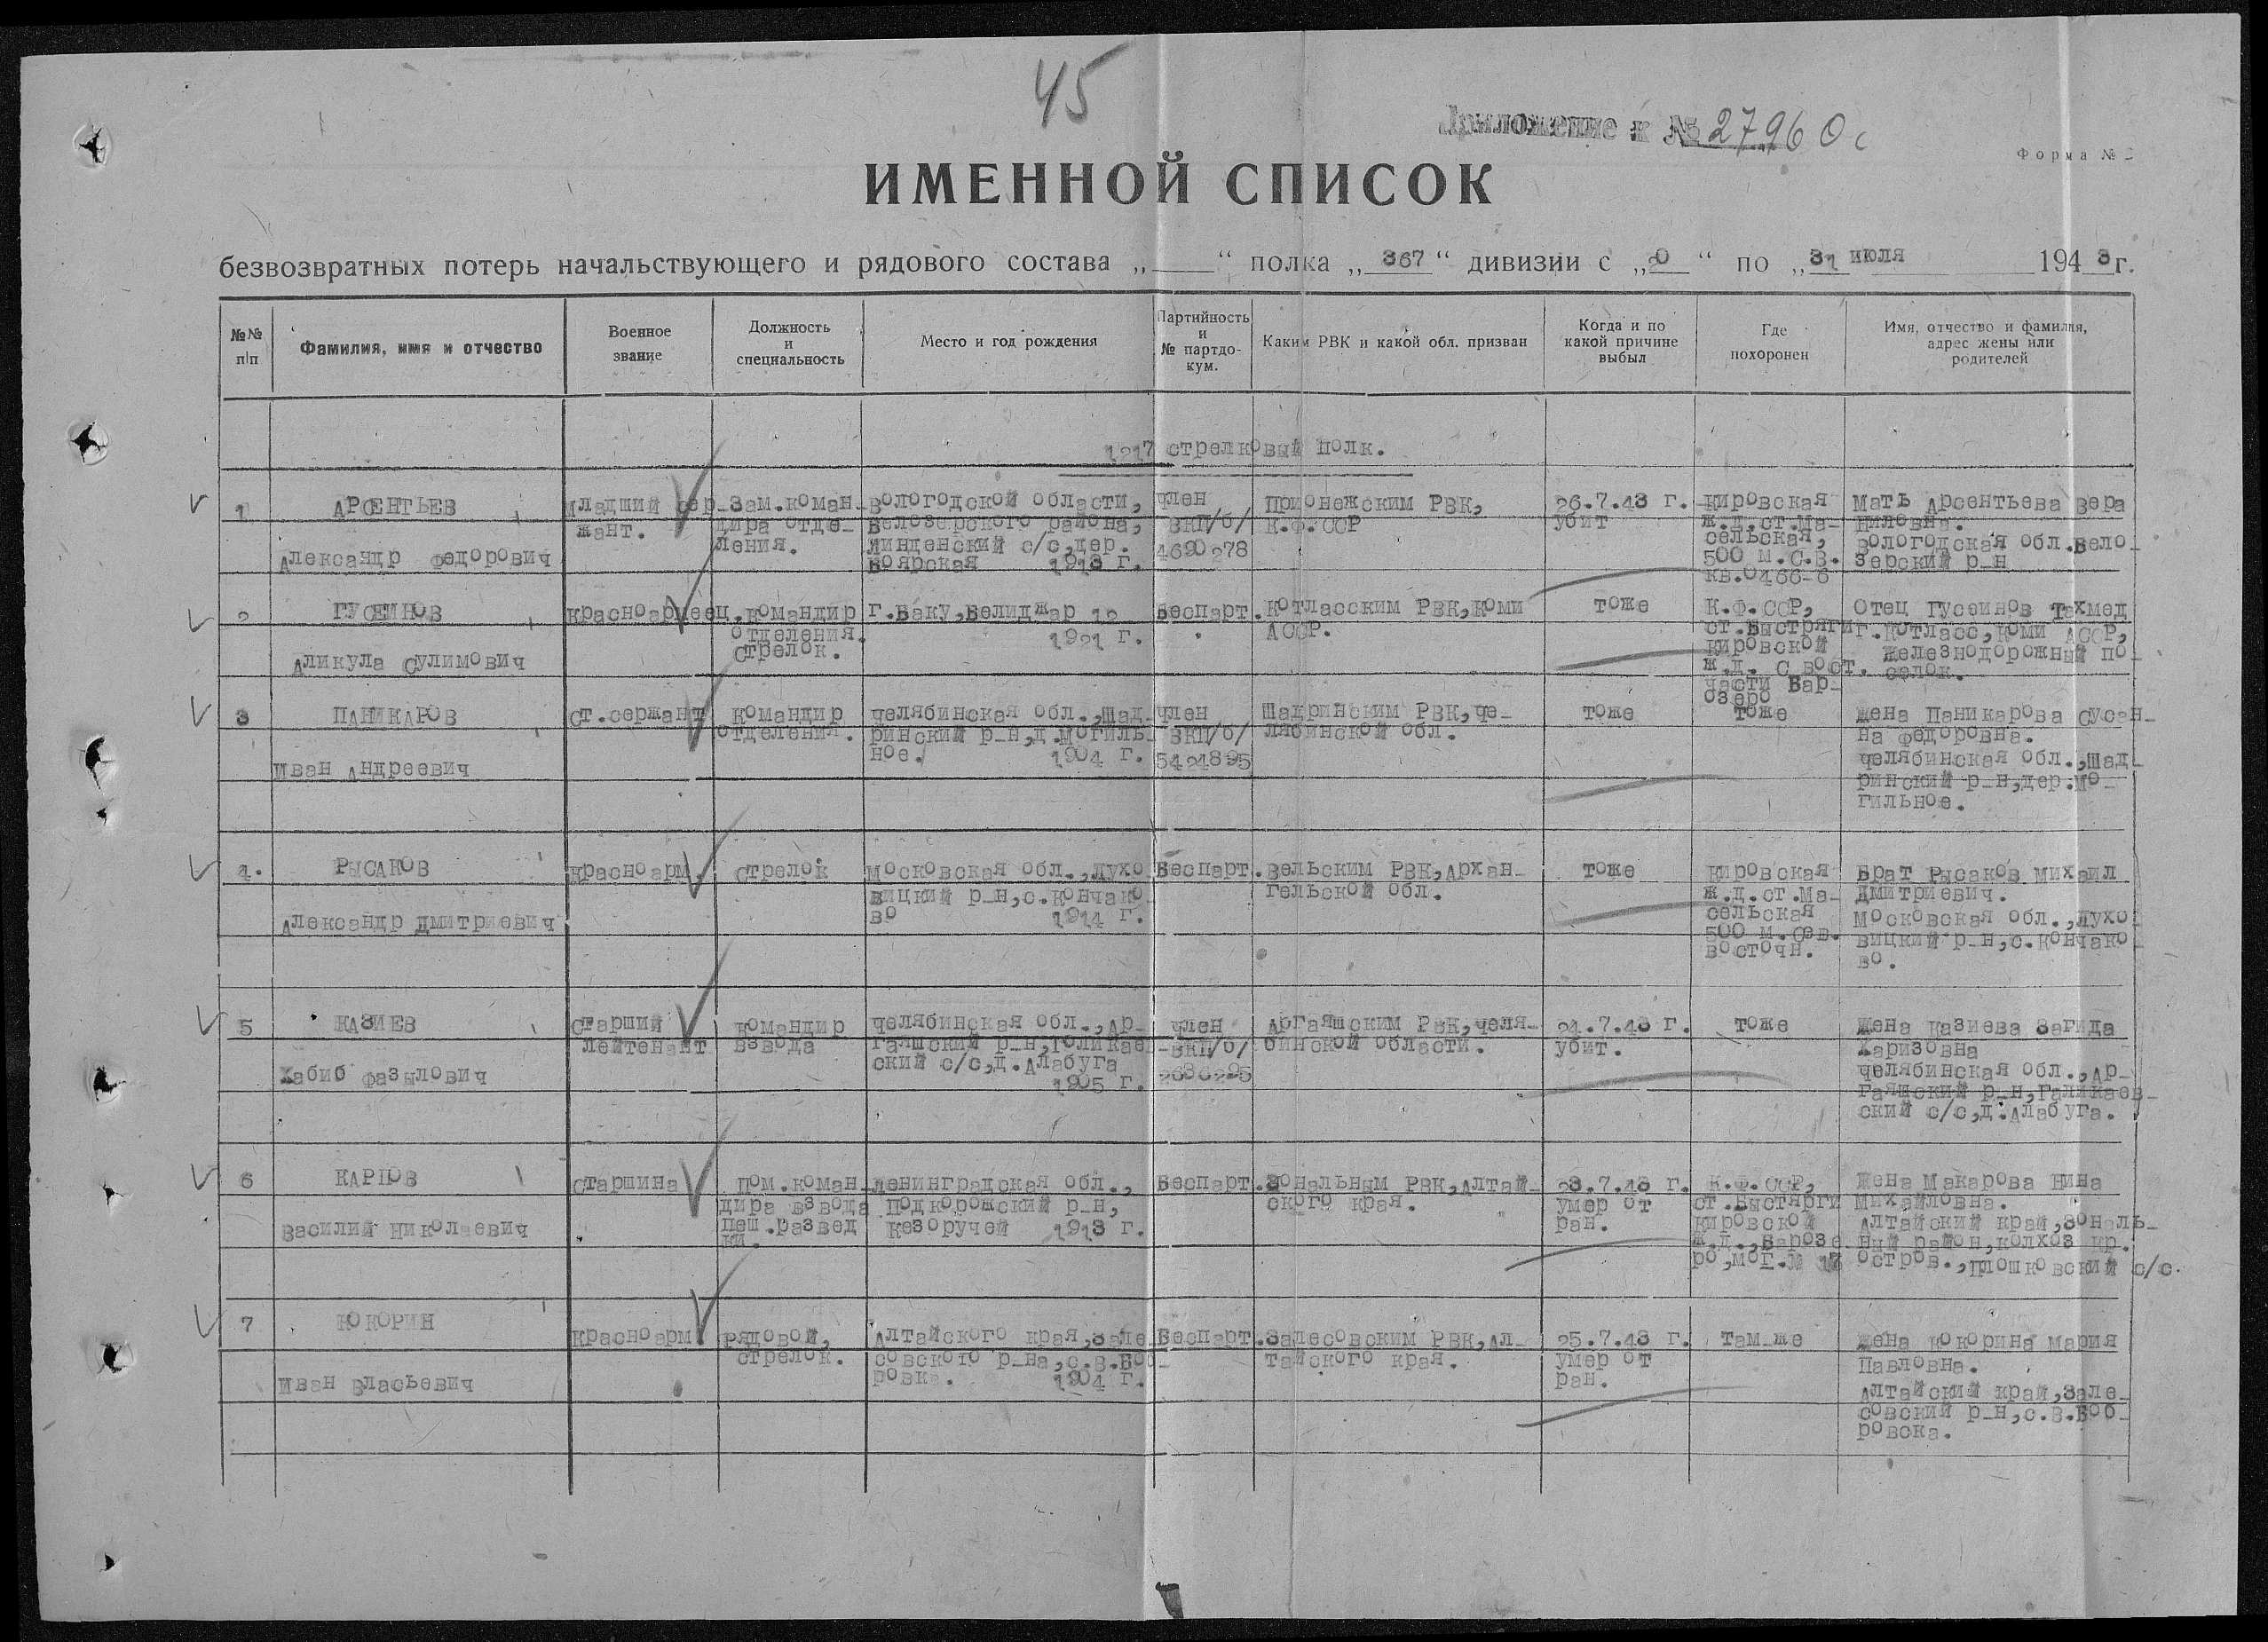 45
Приложение к № 27960с
Форма № 2
ИМЕННОЙ СПИСОК
безвозвратных потерь начальствующего и рядового состава „ “ полка „367“ дивизии с „20“ по „31 июля 1943 г.
№№ п/п
Фамилия, имя и отчество
Военное звание
Должность и специальность
Место и год рождения
Партийность и № партдокум.
Каким РВК и какой обл. призван
Когда и по какой причине выбыл
Где похоронен
Имя, отчество и фамилия, адрес жены или родителей
1217 стрелковый полк.
1
АРСЕНТЬЕВ
Александр Федорович
Младший сер-
жант.
Зам.коман-
дира отде-
ления.
Вологодской области,
Белозерского района,
Линденский с/с,дер.
Боярская 1913 г.
член
ВКП/б/
4690278
Прионежским РВК,
К.Ф.ССР
26.7.43 г.
убит
Кировская
ж.д.ст.Ма-
сельская,
500 м.С.В.
кв.0466-б
Мать Арсентьева Вера
Ниловна.
Вологодская обл.Бело-
зерский р-н
2
ГУСЕИНОВ
Аликула Сулимович
Красноармеец.
Командир
отделения.
Стрелок.
г.Баку,Белиджар 12
1921 г.
Беспарт.
Котласским РВК,Коми
АССР.
тоже
К.Ф.ССР,
ст.Быстряги
Кировской
ж.д. С вост.
части Вар-
озеро
Отец Гусеинов Тахмед
г.Котласс,Коми АССР,
Железнодорожный по-
селок.
3
ПАНИКАРОВ
Иван Андреевич
Ст.сержант
Командир
отделения.
Челябинская обл.,Шад-
ринский р-н,д.Могиль-
ное. 1904 г.
член
ВКП/б/
5424895
Шадринским РВК,Че-
лябинской обл.
тоже
тоже
Жена Паникарова Сусан-
на Федоровна.
Челябинская обл.,Шад-
ринский р-н,дер.Мо-
гильное.
4.
РЫСАКОВ
Александр Дмитриевич
Красноарм.
Стрелок
Московская обл.,Лухо-
вицкий р-н,с.Кончако-
во 1914 г.
Беспарт.
Вельским РВК,Архан-
гельской обл.
тоже
Кировская
ж.д.ст.Ма-
сельская
500 м.Сев.
восточн.
Брат Рысаков Михаил
Дмитриевич.
Московская обл.,Лухо-
вицкий р-н,с.Кончако-
во.
5
КАЗИЕВ
Хабиб Фазылович
Старший
лейтенант
Командир
взвода
Челябинская обл.,Ар-
гаяшский р-н,Голикаев-
ский с/с,д.Алабуга
1905 г.
член
ВКП/б/
2636225
Аргаяшским РВК,Челя-
бинской области.
24.7.43 г.
убит.
тоже
Жена Казиева Загида
Харизовна
Челябинская обл.,Ар-
гаяшский р-н,Галикаев-
ский с/с,д.Алабуга.
6
КАРПОВ
Василий Николаевич
Старшина
Пом.коман-
дира взвода
пеш.развед
ки.
Ленинградская обл.,
Подпорожский р-н,
Кезоручей 1913 г.
Беспарт.
Зональным РВК,Алтай-
ского края.
23.7.43 г.
умер от
ран.
К.Ф.ССР,
ст.Быстярги
Кировской
ж.д.,Варозе
ро,мог.№ 17
Жена Макарова Нина
Михайловна.
Алтайский край,Зональ-
ный район,колхоз Кр.
остров.,Плошковский с/с.
7
КОКОРИН
Иван Власьевич
Красноарм.
Рядовой,
стрелок.
Алтайского края,Зале-
совского р-на,с.В.Боб-
ровка. 1904 г.
Беспарт.
Залесовским РВК,Ал-
тайского края.
25.7.43 г.
умер от
ран.
там-же
Жена Кокорина Мария
Павловна.
Алтайский край,Зале-
совский р-н,с.В.Боб-
ровска.